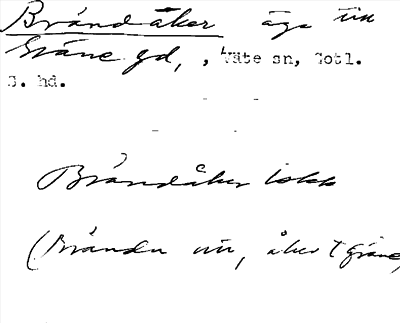 Brändåker äga till
Gräne gd, , Väte sn, Gotl.
S. hd.
Brändåker
(Brändu åker t Gräne,